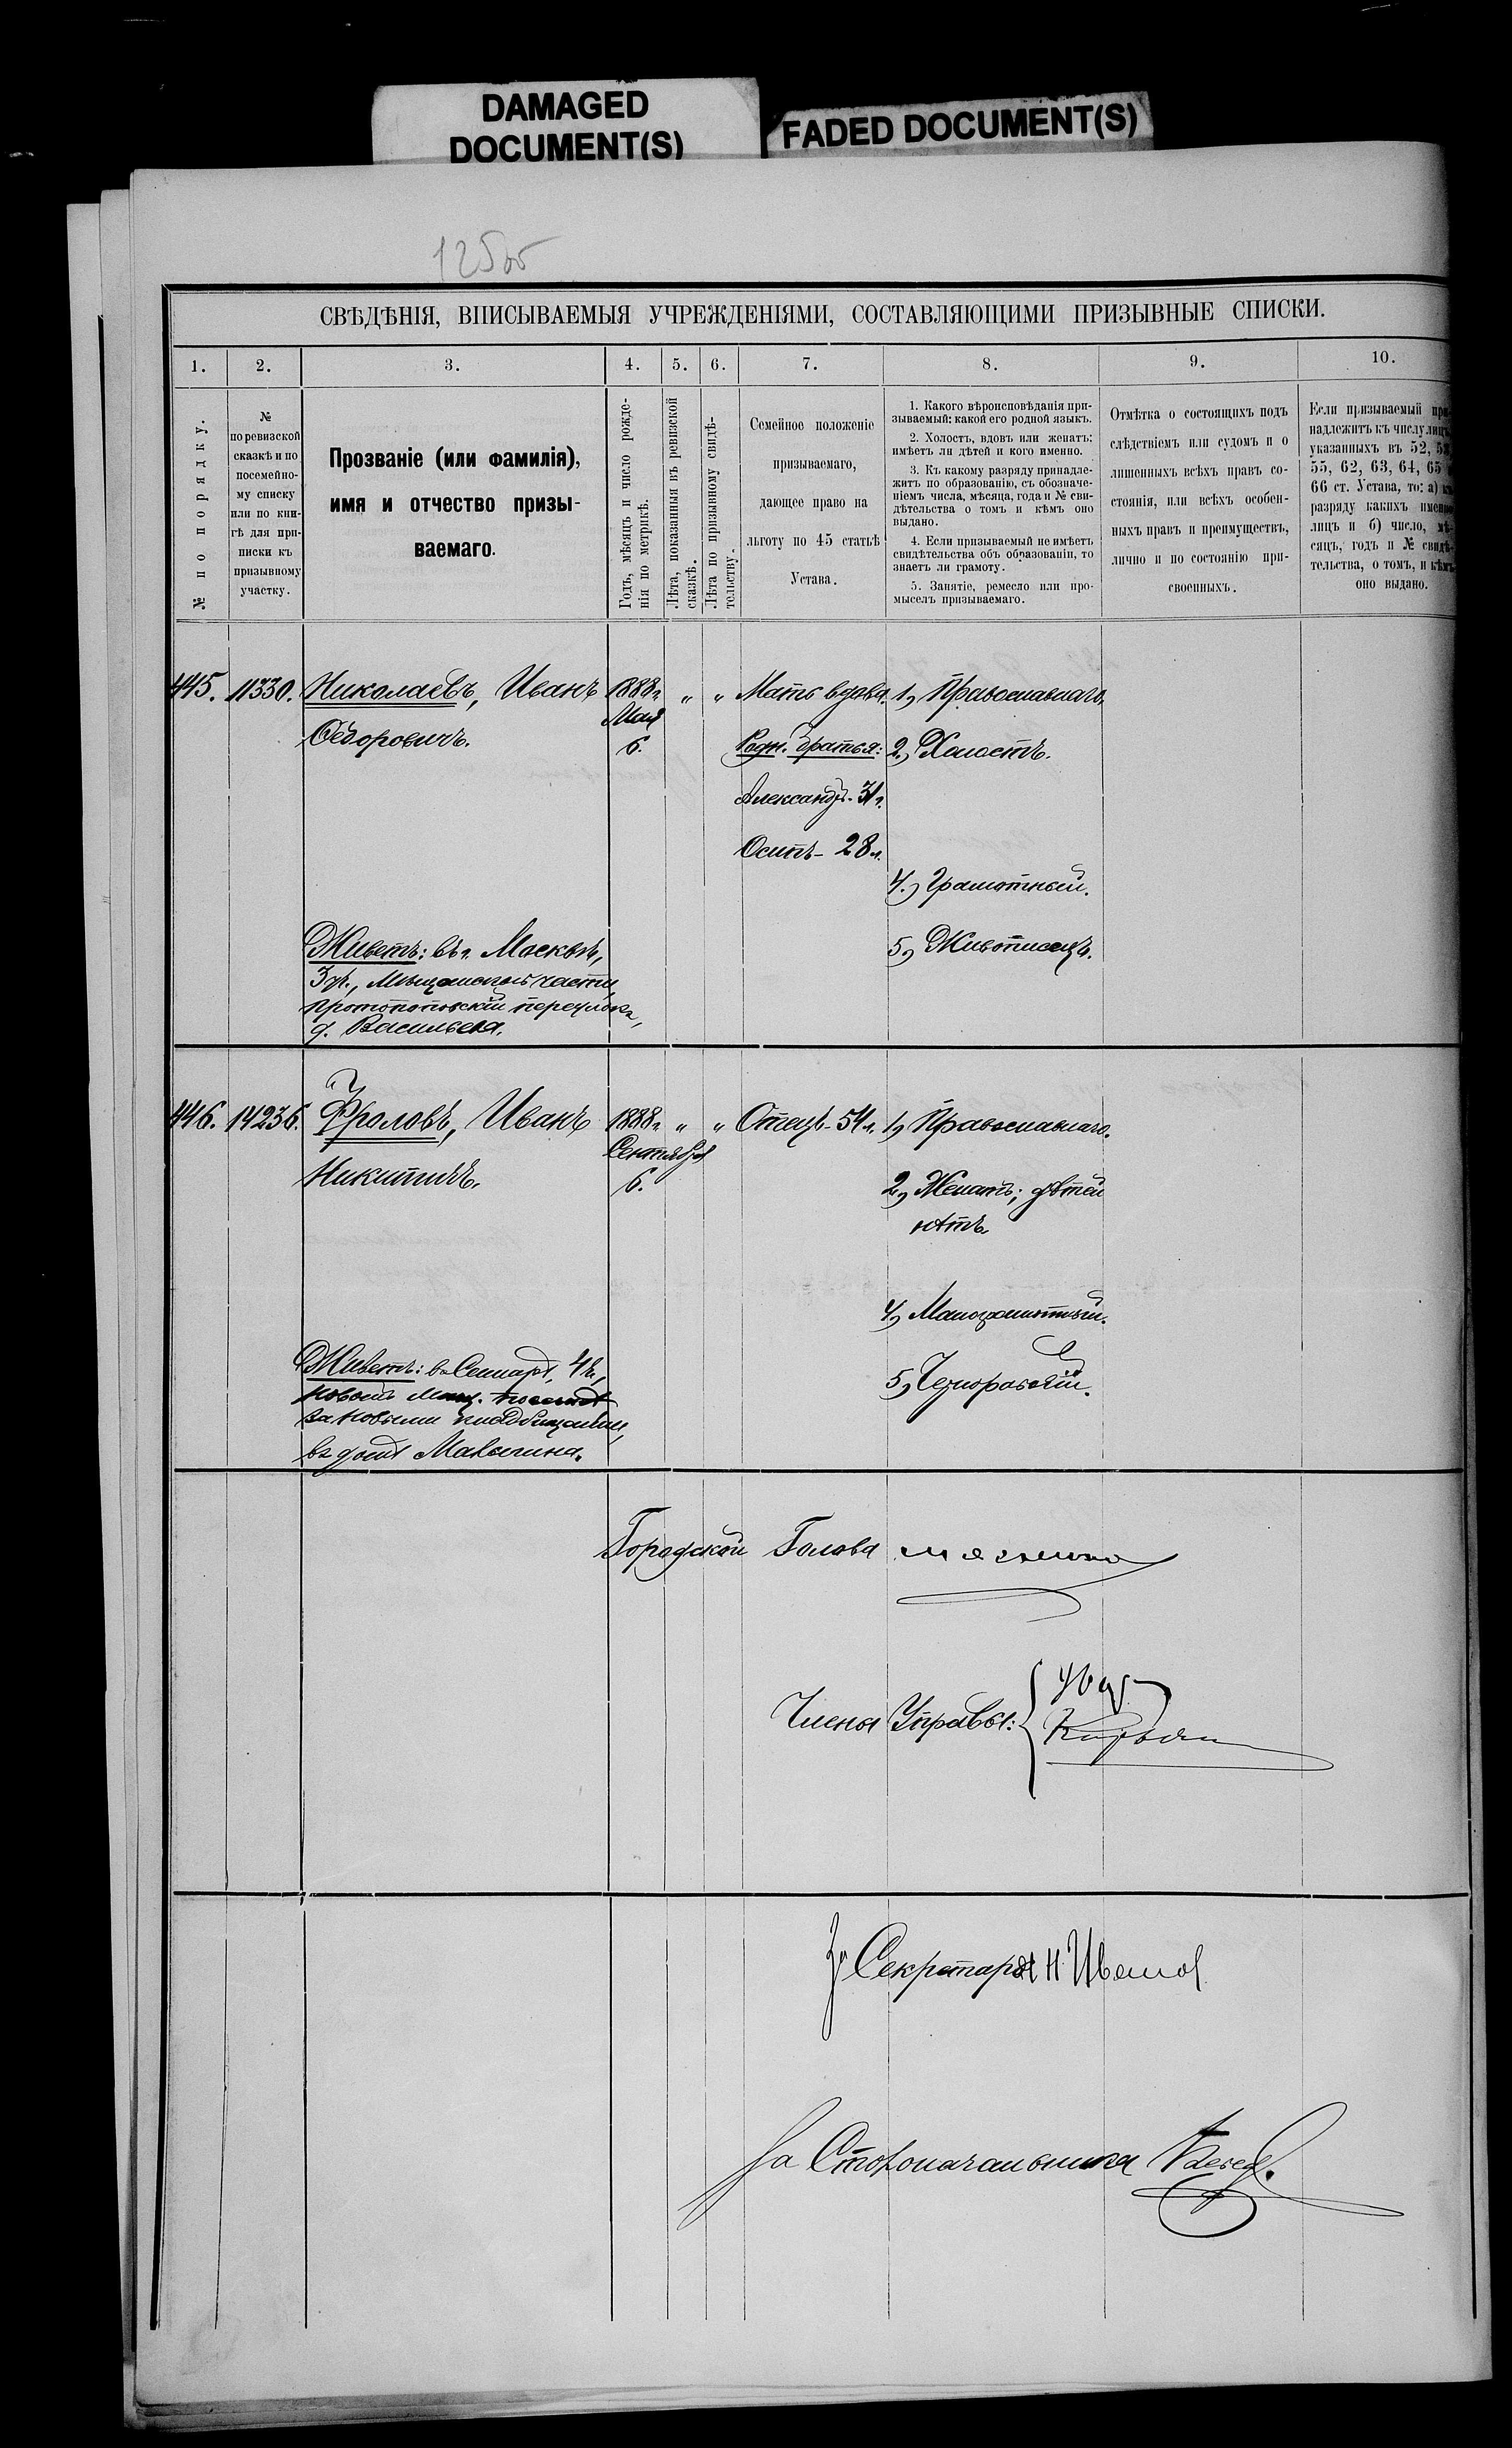 DAMAGED
DOCUMENT(S)
FADED DOCUMENT(S)
125об
СВѢДѢНІЯ, ВПИСЫВАЕМЫЯ УЧРЕЖДЕНІЯМИ, СОСТАВЛЯЮЩИМИ ПРИЗЫВНЫЕ СПИСКИ.
1. 2. 3. 4. 5. 6. 7. 8. 9. 10.
№ по порядку.
№
по ревизской
сказкѣ и по
посемейно-
му списку
или по кни-
гѣ для при-
писки къ
призывному
участку.
Прозваніе (или фамилія),
имя и отчество призы-
ваемаго.
Годъ, мѣсяцъ и число рожде-
нія по метрикѣ.
Лѣта, показанныя въ ревизской
сказкѣ.
Лѣта по призывному свидѣ-
тельству.
Семейное положеніе
призываемаго,
дающее право на
льготу по 45 статьѣ
Устава.
1. Какого вѣроисповѣданія при-
зываемый; какой его родной языкъ.
2. Холостъ, вдовъ или женатъ;
имѣетъ ли дѣтей и кого именно.
3. Къ какому разряду принадле-
житъ по образованію, съ обозначе-
ніемъ числа, мѣсяца, года и № сви-
дѣтельства о томъ и кѣмъ оно
выдано.
4. Если призываемый не имѣетъ
свидѣтельства объ образованіи, то
знаетъ ли грамоту.
5. Занятіе, ремесло или про-
мыселъ призываемаго.
Отмѣтка о состоящихъ подъ
слѣдствіемъ или судомъ и о
лишенныхъ всѣхъ правъ со-
стоянія, или всѣхъ особен-
ныхъ правъ и преимуществъ,
лично и по состоянію при-
своенныхъ.
Если призываемый при-
надлежитъ къ числу лицъ,
указанныхъ въ 52, 53,
55, 62, 63, 64, 65 и
66 ст. Устава, то: а) къ
разряду какихъ именно
лицъ и б) число, мѣ-
сяцъ, годъ и № свидѣ-
тельства, о томъ, и кѣмъ
оно выдано.
445. 11330. Николаевъ, Иванъ
Ѳедоровичъ.
1888 г.
Мая
6.
" "
Мать вдова.
Родн. братья:
Александръ - 31 г.
Осипъ - 28 л.
1, Православнаго.
2, Холостъ.
4, Грамотный.
5, Живописецъ.
Живетъ: въ г. Москвѣ,
3 уч., Мѣщанской части,
Протопоповскій переулокъ,
д. Васильева.
446. 14236. Фроловъ, Иванъ
Никитичъ.
1888 г.
Сентября
6.
" "
Отецъ - 54 л.
1, Православнаго.
2, Женатъ; дѣтей
нѣтъ.
4, Малограмотный.
5, Чернорабочій.
Живетъ: въ Самарѣ, 4 ч.,
за новыми кладбищами,
въ домѣ Малыгина.
Городской Голова
Члены Управы:
За Секретаря Н Иванов
За Столоначальника